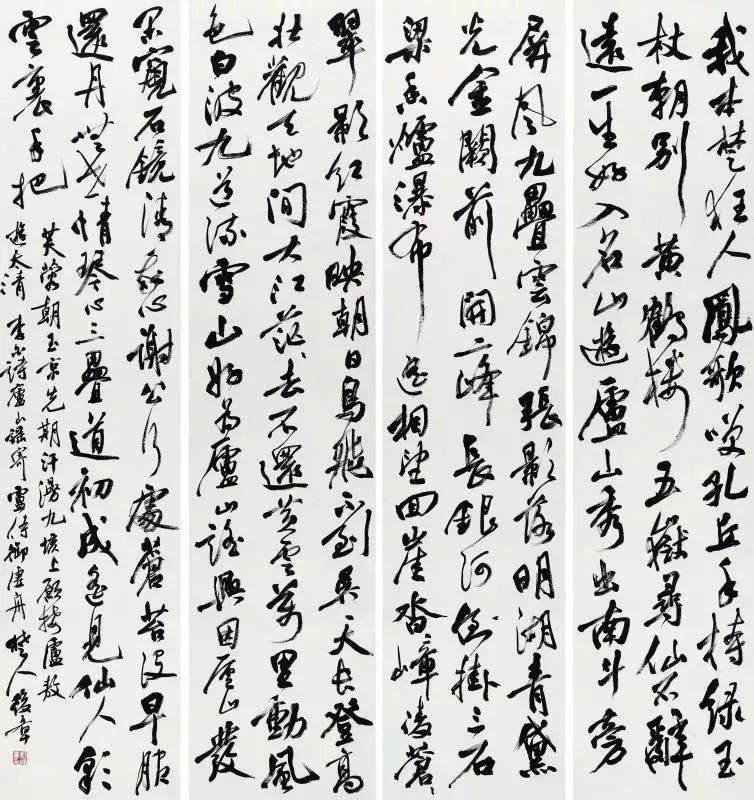 我本楚狂人鳳歌咲孔丘手持緑玉
杖朝別黃鶴樓五嶽尋仙不辭
遠一生好入名山遊廬山秀出南斗旁
屏風九疊雲錦張影落明湖青黛
光金闕前開二峰長銀河倒掛三石
梁香爐瀑布遙相望回崖沓嶂凌蒼〻
翠影紅霞映朝日鳥飛不到吳天長登高
壯觀天地間大江茫〻去不還黃雲萬里動風
色白波九道流雪山好為廬山謠興因廬山發
閑窺石鏡清我心謝公行處蒼苔沒早服
還丹無世情琴心三疊道初成遙見仙人彩
雲裏手把
芙蓉朝玉京先期汗漫九垓上願接盧敖
遊太清 李白詩廬山謠寄盧侍御虛舟 楚人